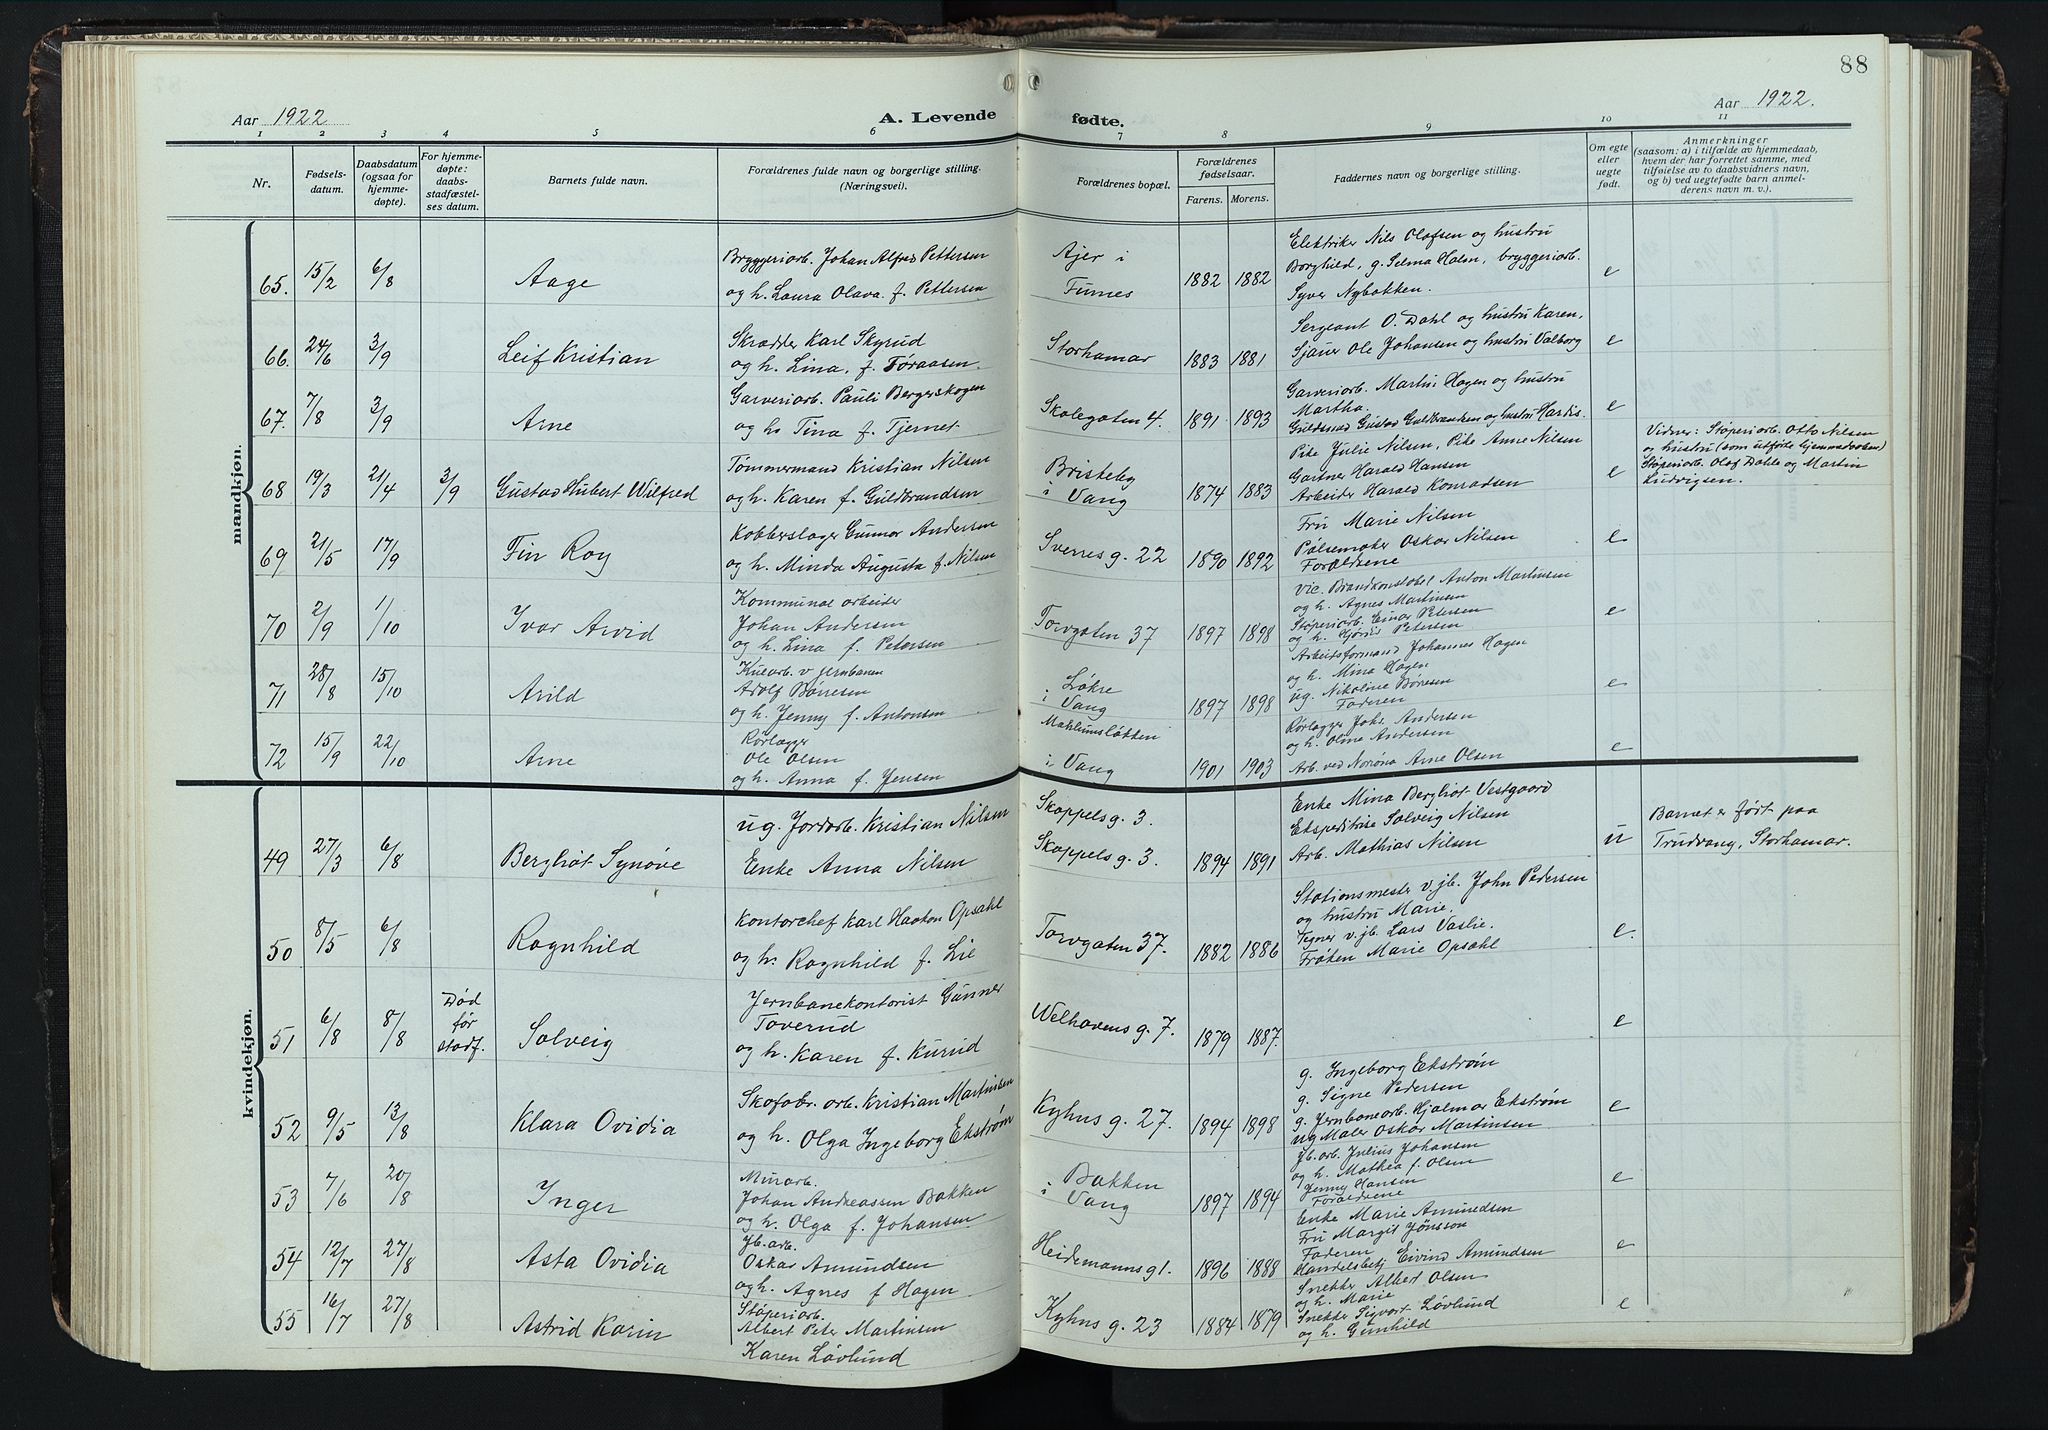 88
Aar 1922
A. Levende
fødte.
Aar 1922.
1 2 3 4 5 6 7 8 9 10 11
Nr.
Fødsels-
datum.
Daabsdatum
(ogsaa for
hjemme-
døpte).
For hjemme-
døpte:
daabs-
stadfæstel-
ses datum.
Barnets fulde navn.
Forældrenes fulde navn og borgerlige stilling.
(Næringsvei).
Forældrenes bopæl.
Forældrenes
fødselsaar.
Farens. Morens.
Faddernes navn og borgerlige stilling.
Om egte
eller
uegte
født.
Anmerkninger
(saasom: a) i tilfælde av hjemmedaab,
hvem der har forrettet samme, med
tilføielse av to daabsvidners navn,
og b) ved uegtefødte barn anmel-
derens navn m. v.).
mandkjøn.
65. 15/2 6/8 Aage
Bryggeriarb. Johan Alfred Pettersen
og h. Laura Olava f. Pettersen
Ajer i
Furnes
1882 1882
Elektriker Nils Olafsen og hustru
Borghild, g. Selma Holm, bryggeriarb.
Syver Nybakken.
e
66. 24/6 3/9 Leif Kristian
Skrædder Karl Skyrud
og h. Lina, f. Føraasen.
Storhamar
1883 1881
Sergeant O. Dahl og hustru Karen,
Sjauer Ole Johansen og hustru Valborg
e
67. 7/8 3/9 Arne
Garveriarb. Pauli Bergerskogen
og h. Tina f. Tjernet
Skolegaten 4.
1891 1893
Garveriarb. Martin Hagen og hustru
Martha.
Guldsmed Gustav Guldbrandsen og hustru Hardis.
e
68 19/3 21/4 3/9 Gustav Hubert Wilfred
Tømmermand Kristian Nilsen
og h. Karen f. Guldbrandsen
Bristeby
i Vang
1874 1883
Pike Julie Nilsen, Pike Anne Nilsen
Gartner Harald Hansen
Arbeider Harald Konradsen
e
Vidner: Støperiarb. Otto Nilsen
og hustru (som utførte hjemmedaaben)
Støperiarb. Olaf Dahle og Martin
Ludvigsen.
69 21/5 17/9 Fin Roy
Kobberslager Gunnar Andersen
og h. Minda Augusta f. Nilsen
Sverres g. 22
1890 1892
Fru Marie Nilsen
Pølsemaker Oskar Nilsen
Forældrene
e
70 2/9 1/10 Ivar Arvid
Kommunal arbeider
Johan Andersen
og h. Lina f. Petersen
Torvgaten 37
1897 1898
Vic. Brandkonstabel Anton Martinsen
og h. Agnes Martinsen
Støperiarb. Einar Petersen
og h. Hjørdis Petersen
e
71 28/8 15/10 Arild
Kularb. v. jernbanen
Adolf Børresen
og h. Jenny f. Antonsen
Løkre
i Vang
1897 1898
Arbeidsformand Johannes Hagen
og h. Mina Hagen
ug. Nikoline Børresen
Faderen
e
72 15/9 22/10 Arne
Rørlægger
Ole Olsen
og h. Anna f. Jensen
Mæhlumsløkken
i Vang
1901 1903
Rørlægger Johs. Andersen
og h. Olme Andersen
Arb. ved Norøna Arne Olsen
e
kvindekjøn.
49 27/3 6/8 Bergliot Synøve
ug. Jordarb. Kristian Nilsen
Enke Anna Nilsen
Skappels g. 3.
Skappels g. 3.
1894 1891
Enke Mina Bergliot Vestgaard
Ekspeditrise Solveig Nilsen
Arb. Mathias Nilsen
u
Barnet er født paa
Trudvang, Storhamar.
50 8/5 6/8 Ragnhild
Kontorchef Karl Haakon Opsahl
og h. Ragnhild f. Lie
Torvgaten 37.
1882 1886
Stationsmester v. jb. John Pedersen
og hustru Marie.
Tegner v. jb. Lars Vaslie.
Frøken Marie Opsahl
e.
51 6/8 8/8 Død
før
stadf. Solveig
Jernbanekontorist Gunner
Toverud
og h. Karen f. Kurud
Welhavens g. 7.
1879 1887.
e
52 9/5 13/8 Klara Ovidia
Skofabr. arb. Kristian Martinsen
og h. Olga Ingeborg Ekstrøm
Kyhns g. 27.
1894 1898
g. Ingeborg Ekstrøm
g. Signe Pedersen
g. Jernbanearb. Hjalmar Ekstrøm
ug Maler Oskar Martinsen
e
53 7/6 20/8 Inger
Murarb.
Johan Andreassen Bakken
og h. Olga f. Johansen
Bakken
i Vang
1897 1894
Jb. arb. Julius Johansen
og h. Mathea f. Olsen
Jenny Hansen
Forældrene
e
54 12/7 27/8 Asta Ovidia
Jb. arb.
Oskar Amundsen
og h. Agnes f Hagen
Heidemanns g1.
1896 1888
Enke Marie Amundsen
Fru Margit Jønsson
Faderen
Handelsbetj Eivind Amundsen
e
55 16/7 27/8 Astrid Karin
Støperiarb.
Albert Peter Martinsen
Karen Løvlund
Kyhns g. 23
1884 1879
Snekker Albert Olsen
og h. Marie
Snekker Sigvart Løvlund
og h. Gunhild
e